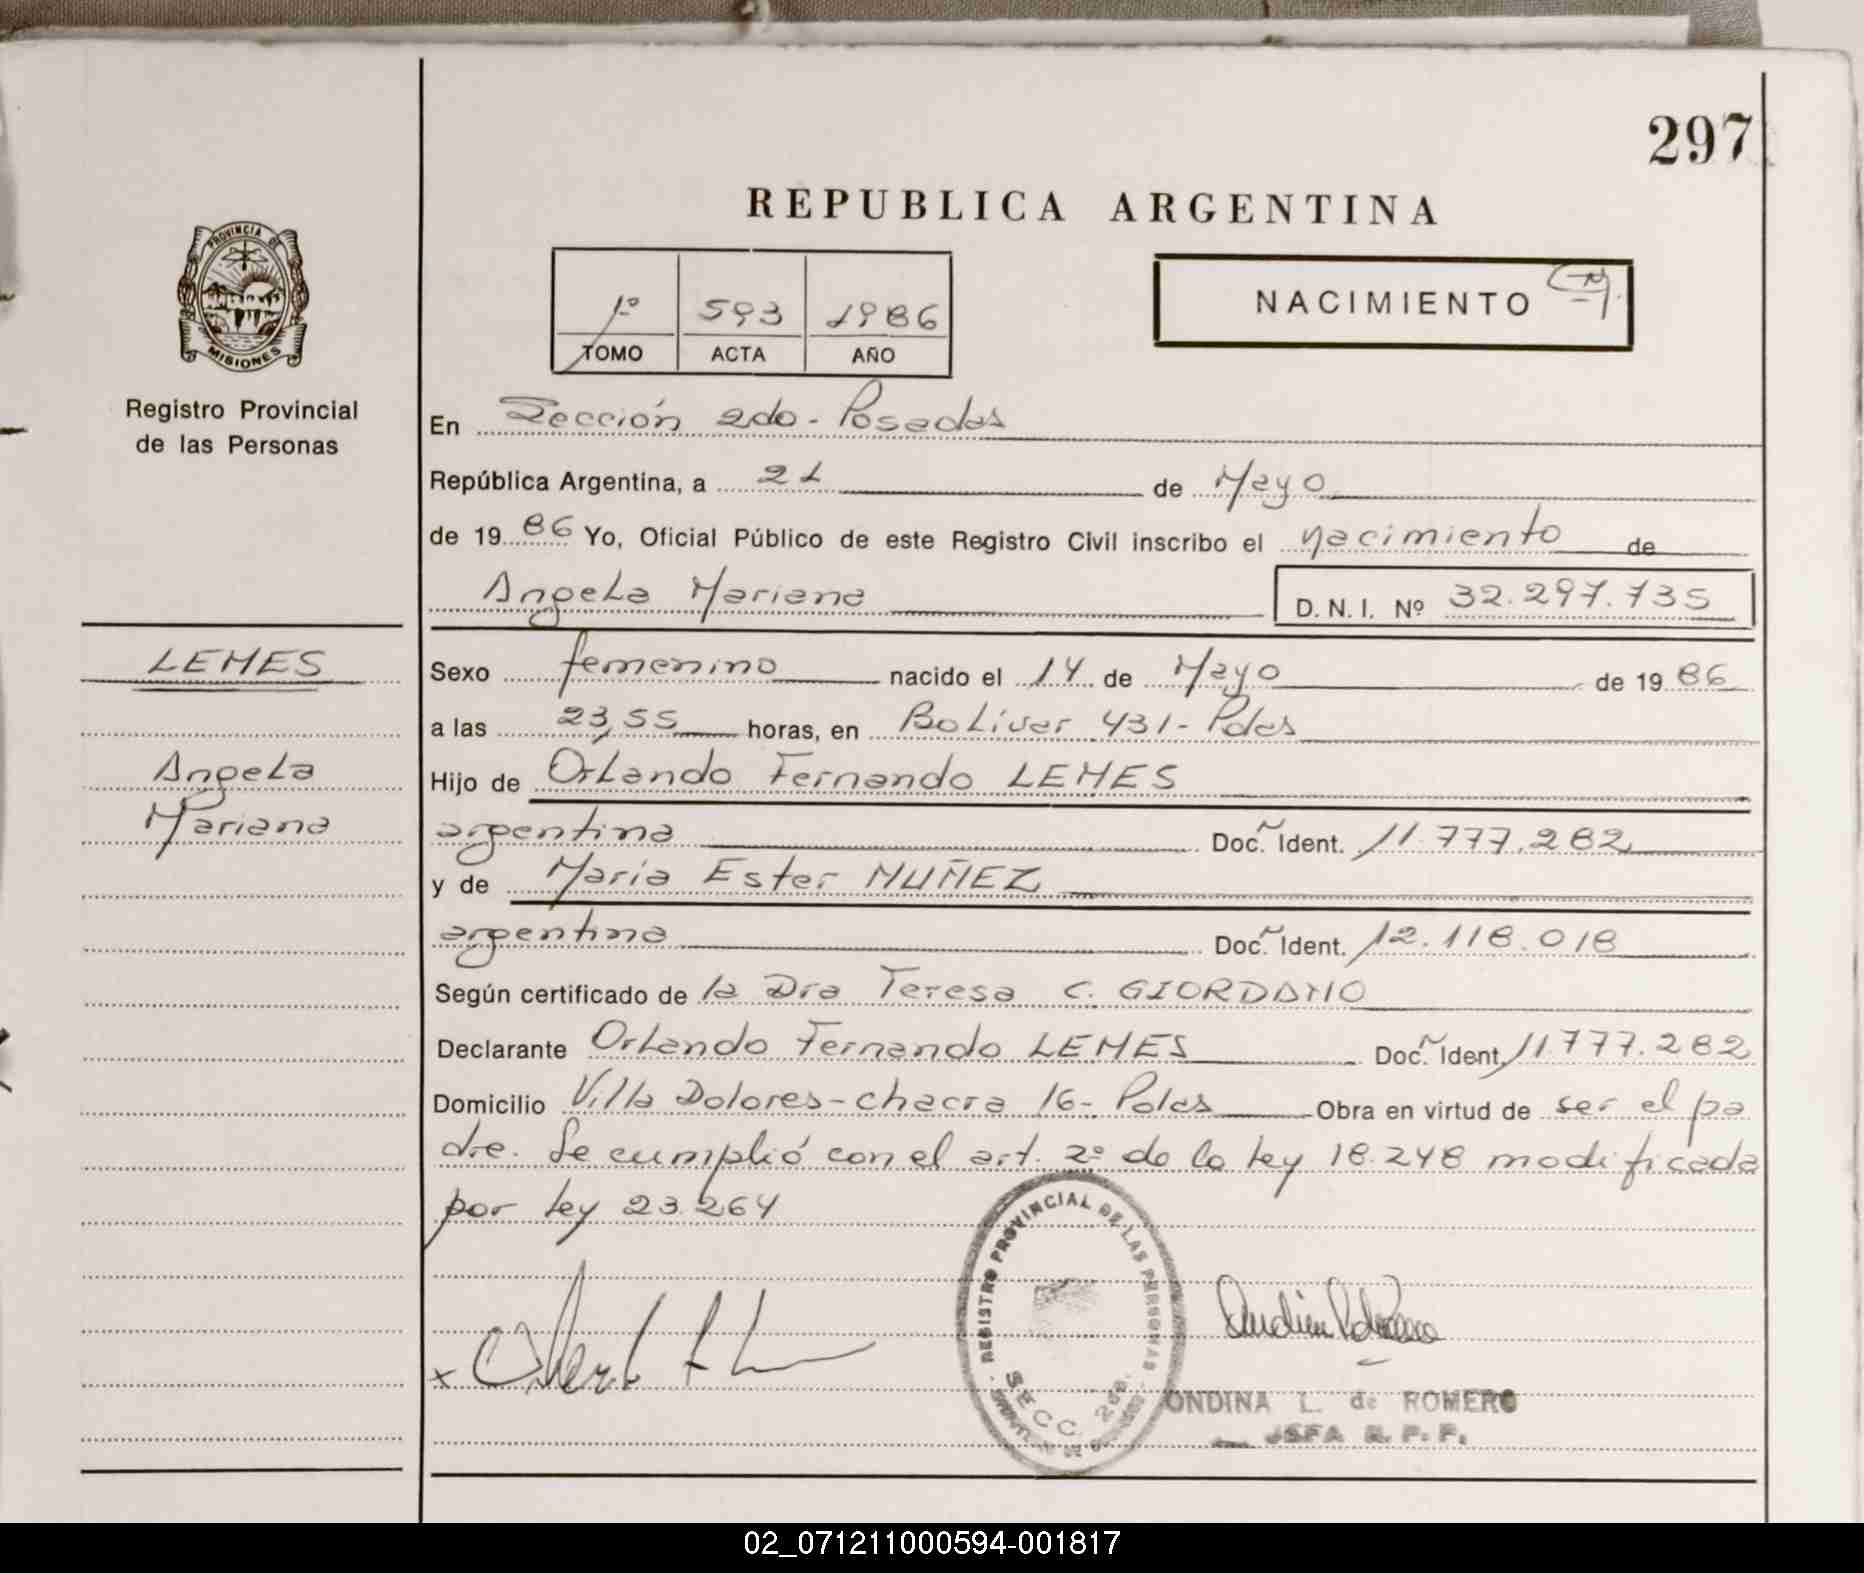 297
REPUBLICA ARGENTINA
PROVINCIA DE
MISIONES
Registro Provincial
de las Personas
1º 593 1986
TOMO ACTA AÑO
NACIMIENTO
En Sección 2do - Posadas
República Argentina, a 21 de Mayo
de 19 86 Yo, Oficial Público de este Registro Civil inscribo el nacimiento de
Angela Mariana D. N. I. Nº 32.297.735
LEMES
Angela
Mariana
Sexo femenino nacido el 14 de Mayo de 19 86
a las 23,55 horas, en Bolivar 431 - Pdas
Hijo de Orlando Fernando LEMES
argentina Doc. Ident. 11.777.282
y de Maria Ester NUÑEZ
argentina Doc. Ident. 12.118.018
Según certificado de la Dra Teresa C. GIORDANO
Declarante Orlando Fernando LEMES Doc. Ident. 11.777.282
Domicilio Villa Dolores - chacra 16 - Pdas Obra en virtud de ser el pa
dre. Se cumplió con el art. 2º de la ley 18.248 modificada
por ley 23.264
REGISTRO PROVINCIAL DE LAS PERSONAS
SECC. 2da.
ONDINA L. de ROMERO
JEFA R. P. P.
02_071211000594-001817